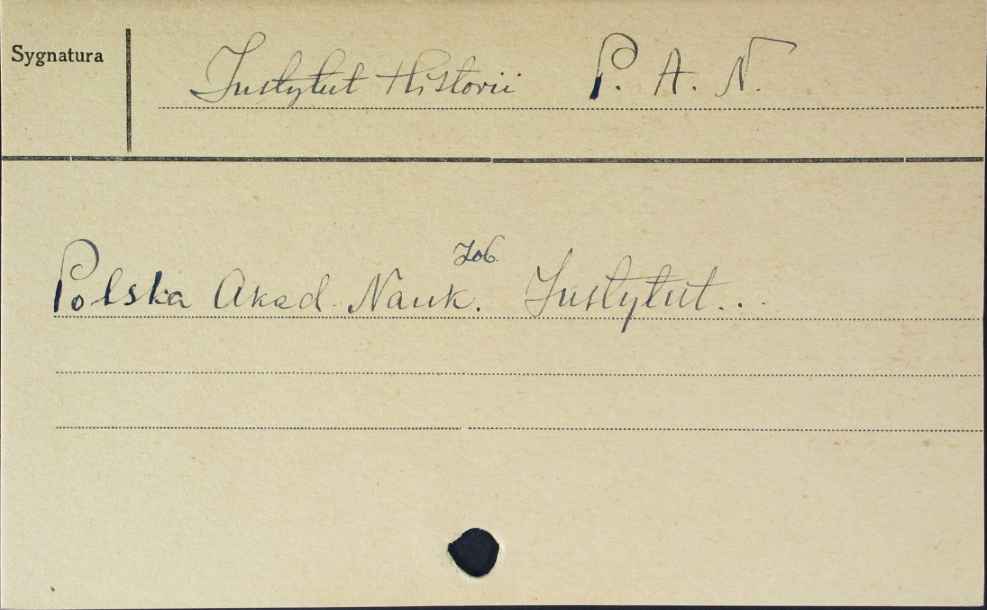 Sygnatura
Instytut Historii P. A. N.
Zob.
Polska Akad. Nauk. Instytut...